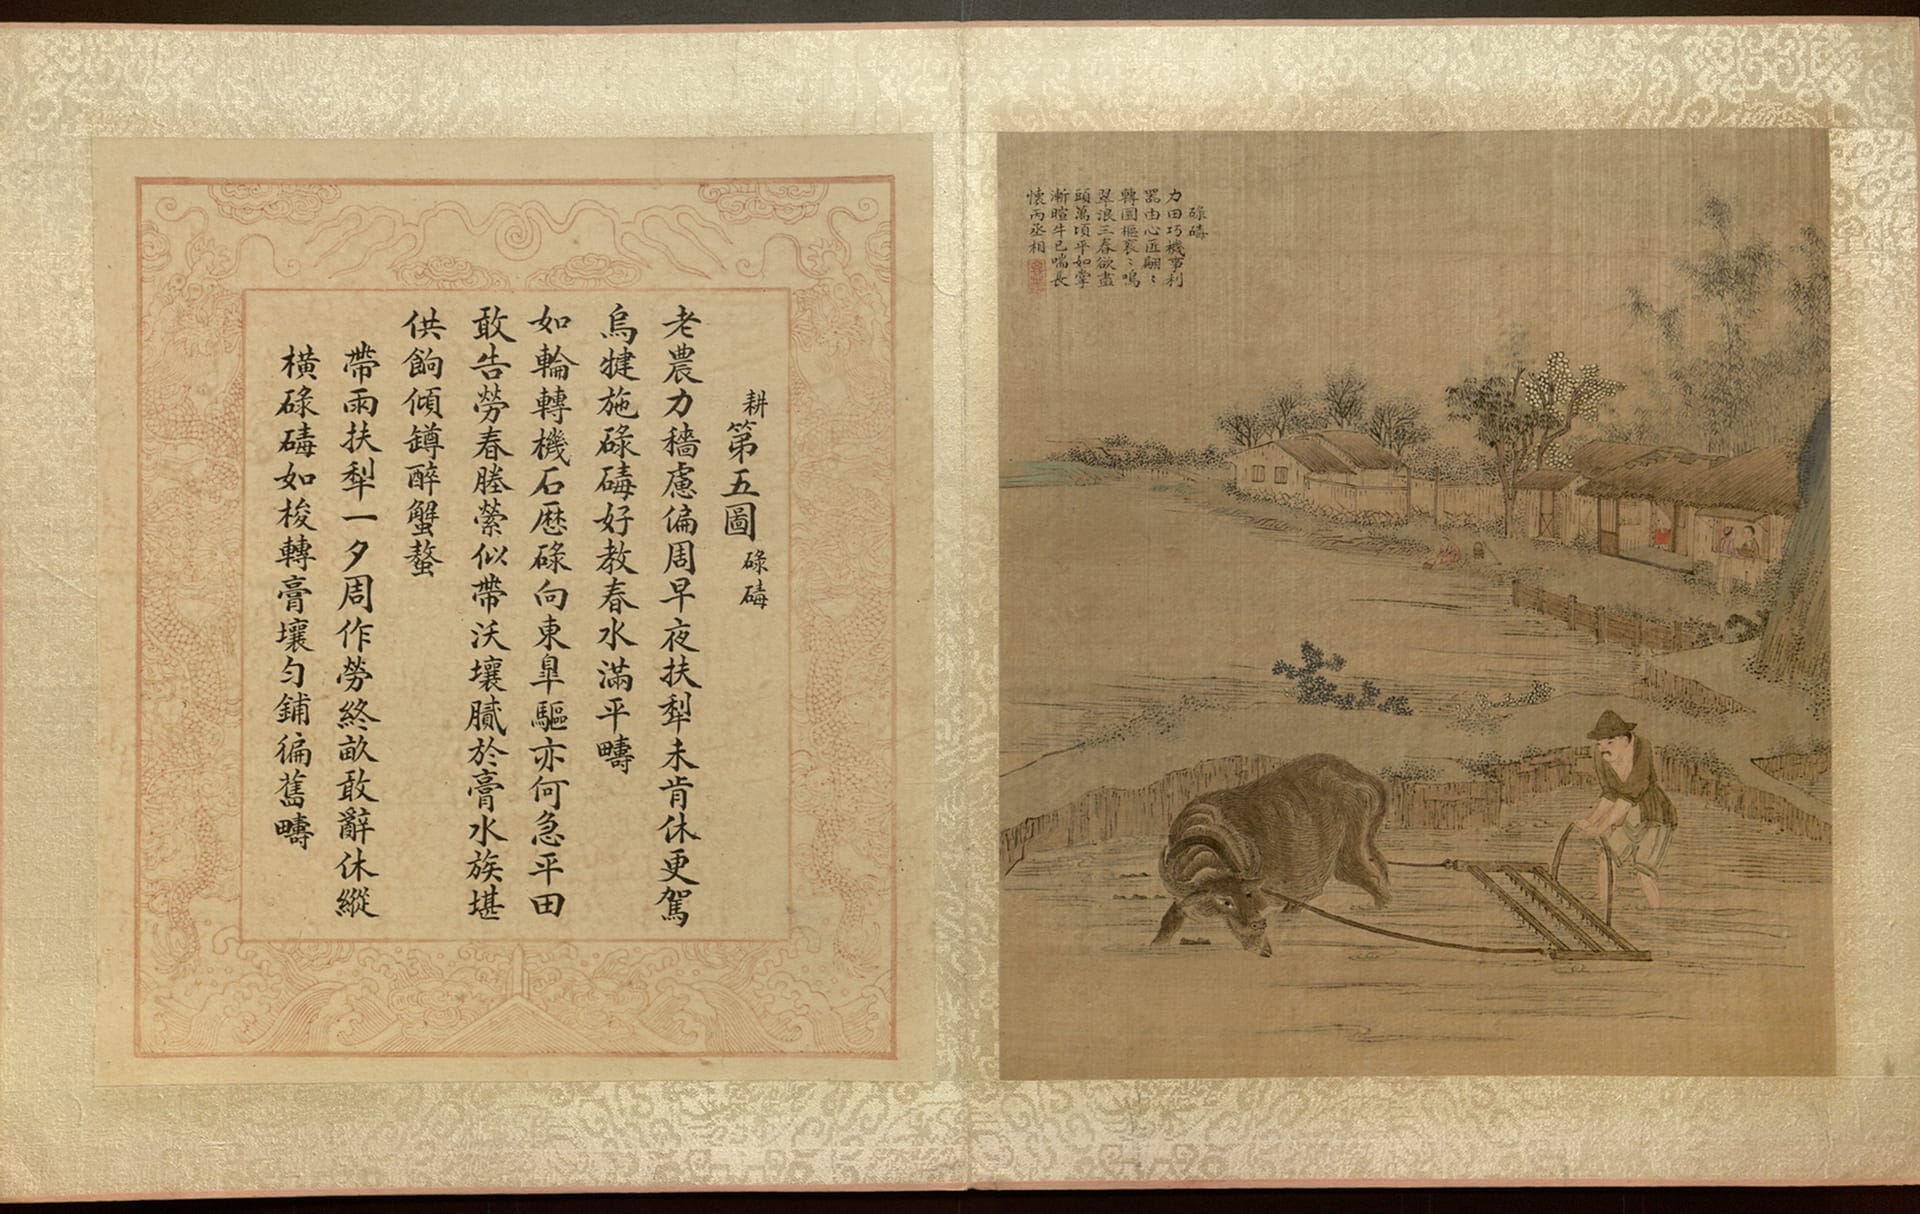 耕第五圖碌碡
老農力穡慮偏周早夜扶犁未肯休更駕
烏犍施碌碡好教春水滿平疇
如輪轉機石歷碌向東臯驅亦何急平田
敢告勞春塍縈似帶沃壤膩於膏水族堪
供餉傾罇醉蟹螯
帶雨扶犁一夕周作勞終畝敢辭休縱
橫碌碡如梭轉膏壤勻鋪徧舊疇
碌碡
力田巧機事利
器由心匠翩〻
轉圜樞袞〻鳴
翠浪三春欲盡
頭萬頃平如掌
漸暄牛已喘長
懷丙丞相